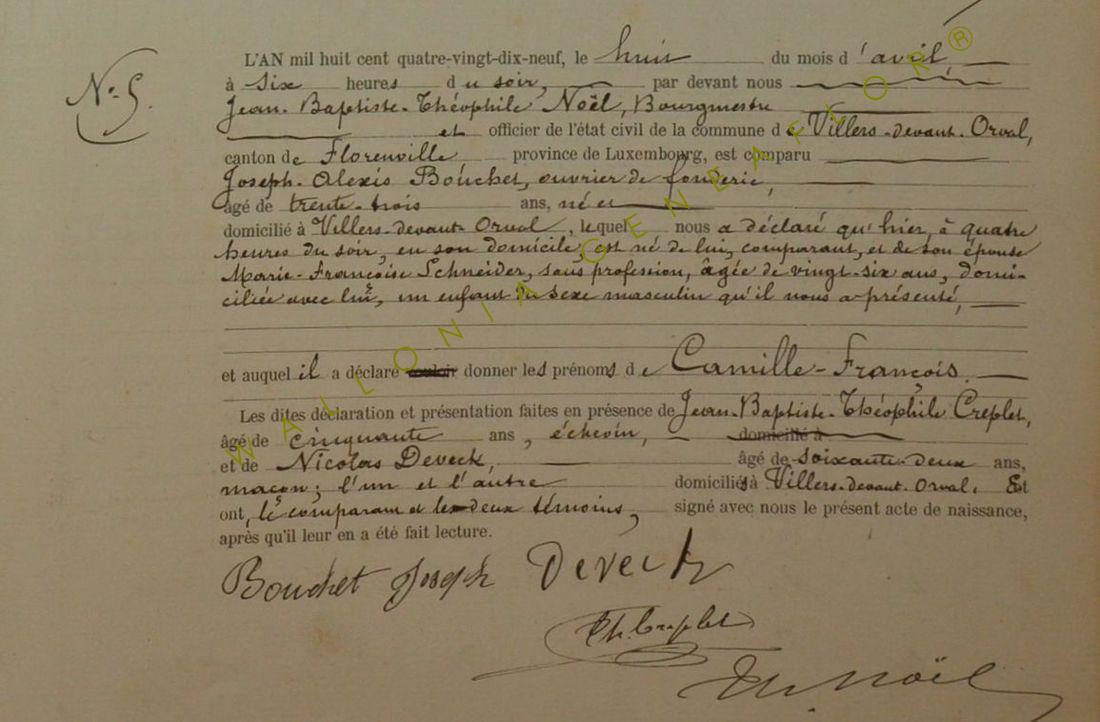 N° 5.
L'AN mil huit cent quatre-vingt-dix-neuf, le huit du mois d'avril,
à six heures du soir, par devant nous
Jean-Baptiste-Théophile Noël, Bourgmestre
et officier de l'état civil de la commune de Villers-devant-Orval,
canton de Florenville province de Luxembourg, est comparu
Joseph-Alexis Bouchet, ouvrier de fonderie,
âgé de trente-trois ans, né et
domicilié à Villers-devant-Orval, lequel nous a déclaré qu'hier, à quatre
heures du soir, en son domicile, est né de lui, comparant, et de son épouse
Marie-Françoise Schneider, sans profession, âgée de vingt-six ans, domi-
ciliée avec lui, un enfant du sexe masculin qu'il nous a présenté,
et auquel il a déclaré vouloir donner les prénoms de Camille-François.
Les dites déclaration et présentation faites en présence de Jean-Baptiste-Théophile Creplet,
âgé de cinquante ans, échevin, domicilié à
et de Nicolas Deveck, âgé de soixante-deux ans,
maçon; l'un et l'autre domiciliés à Villers-devant-Orval. Et
ont, le comparant et les deux témoins, signé avec nous le présent acte de naissance,
après qu'il leur en a été fait lecture.
Bouchet Joseph Deveck
Th. Creplet
Th. Noël
WALLONIA GENEAFLOR ®